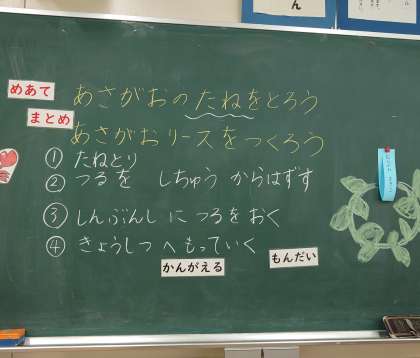 ん
めあて
あさがおのたねをとろう
まとめ
あさがおリースをつくろう
① たねとり
② つるを しちゅう からはずす
③ しんぶんし に つるを おく
④ きょうしつ へ もっていく
かんがえる
もんだい